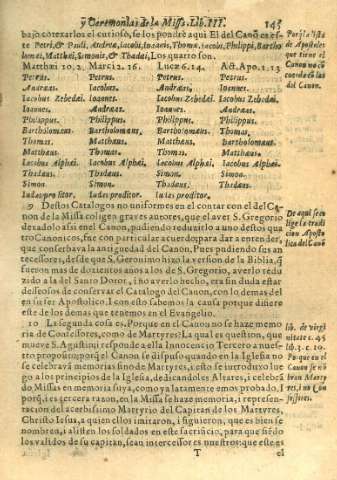 y Ceremonias de la Missa. Lib. III. 145
bajo cotexarlos el curioso, se los pondrè aqui El del Canõ es es-
te Petri, & Pauli, Andreæ, Iacobi, Ioannis, Thomæ, Iacobi, Philippi, Bartho
lomei, Matthei, Simonis, & Thadæi, Los quatro son.
Matthæi 10. 2. Marci 2. 16. Lucæ 6. 14. Act. Apo. 1. 13
Petrus. Petrus. Petrus. Petrus.
Andreas. Iacobus. Andreas. Ioannes.
Iacobus Zebedæi. Ioannes. Iacobus Zebedæi. Iacobus Zebedæi.
Ioannes. Andreas. Ioannes. Andreas.
Philippus. Philippus. Philippus. Philippus.
Bartholomæus. Bartholomæus. Bartholomæus. Thomas.
Thomas. Matthæus. Matthæus. Bartholomæus.
Matthæus. Thomas. Thomas. Matthæus.
Iacobus Alphæi. Iacobus Alphæi. Iacobus Alphæi. Iacobus Alphæi.
Thadæus. Thadæus. Simon. Simon.
Simon. Simon. Thadæus. Thadæus.
Iudas proditor. Iudas proditor. Iudas proditor.
9 Destos Catalogos no uniformes en el contar con el del Ca-
non de la Missa coligen graves autores, que el aver S. Gregorio
dexadolo assi en el Canon, pudiendo reduzirlo a uno destos qua
tro Canonicos, fue con particular acuerdo, para dar a entender,
que conservaba la antiguedad del Canon, Pues pudiendo sus an
tecessores, desde que S. Geronimo hizo la version de la Biblia, q̃
fueron mas de dozientos años a los de S. Gregorio, averlo redu
zido a la del Santo Dotor, i no averlo hecho, era sin duda estar
desseosos de conservar el Catalogo del Canon, con lo demas del
en su ser Apostolico. I con esto sabemos la causa porque difiere
este de los demas que tenemos en el Evangelio.
10 La segunda cosa es, Porque en el Canon no se haze memo-
ria de Confessores, como de Martyres? La qual es question, que
mueve S. Agustin; i responde a ella Innocencio Tercero a nues-
tro proposito; porq̃ el Canon se dispuso quando en la Iglesia no
se celebrava memoria sino de Martyres; i esto se introduxo lue
go a los principios de la Iglesia, dedicandoles Altares, i celebrã
do Missas en memoria suya, como ya latamente emos probado, I
porq̃, i es tercera razon, en la Missa se haze memoria, i represen-
tacion del acerbissimo Martyrio del Capitan de los Martyres,
Christo Iesus, a quien ellos imitaron, i siguieron, que es bien se
nombren, i alisten los soldados en este sacrificio, para que siẽdo
los validos de su capitan, sean intercessores nuestros: que este es
T el
Por q̃ la lista
de Apostoles
que tiene el
Canon no cō
cuerda cō las
del Canon.
De aqui se co
lige la tradi
cion Aposto
lica del Canõ
lib. de virgi
nitate c. 45
lib. 3. c. 10.
Porque en el
Canon se nō
bran Marty
res, i no Con
fessores.